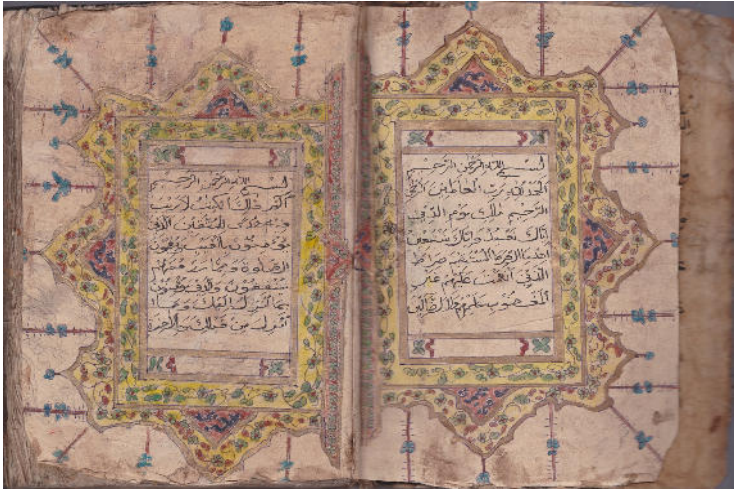 بسم الله الرحمن الرحيم
الحمد لله رب العلمين الرحمن
الرحيم ملك يوم الدين
اياك نعبد واياك نستعين
اهدنا الصراط المستقيم صراط
الذين انعمت عليهم غير
المغضوب عليهم ولا الضالين
بسم الله الرحمن الرحيم
الم ذلك الكتب لا ريب
فيه هدى للمتقين الذين
يؤمنون بالغيب ويقيمون
الصلوة ومما رزقنهم
ينفقون والذين يؤمنون
بما انزل اليك وما
انزل من قبلك وبالاخرة